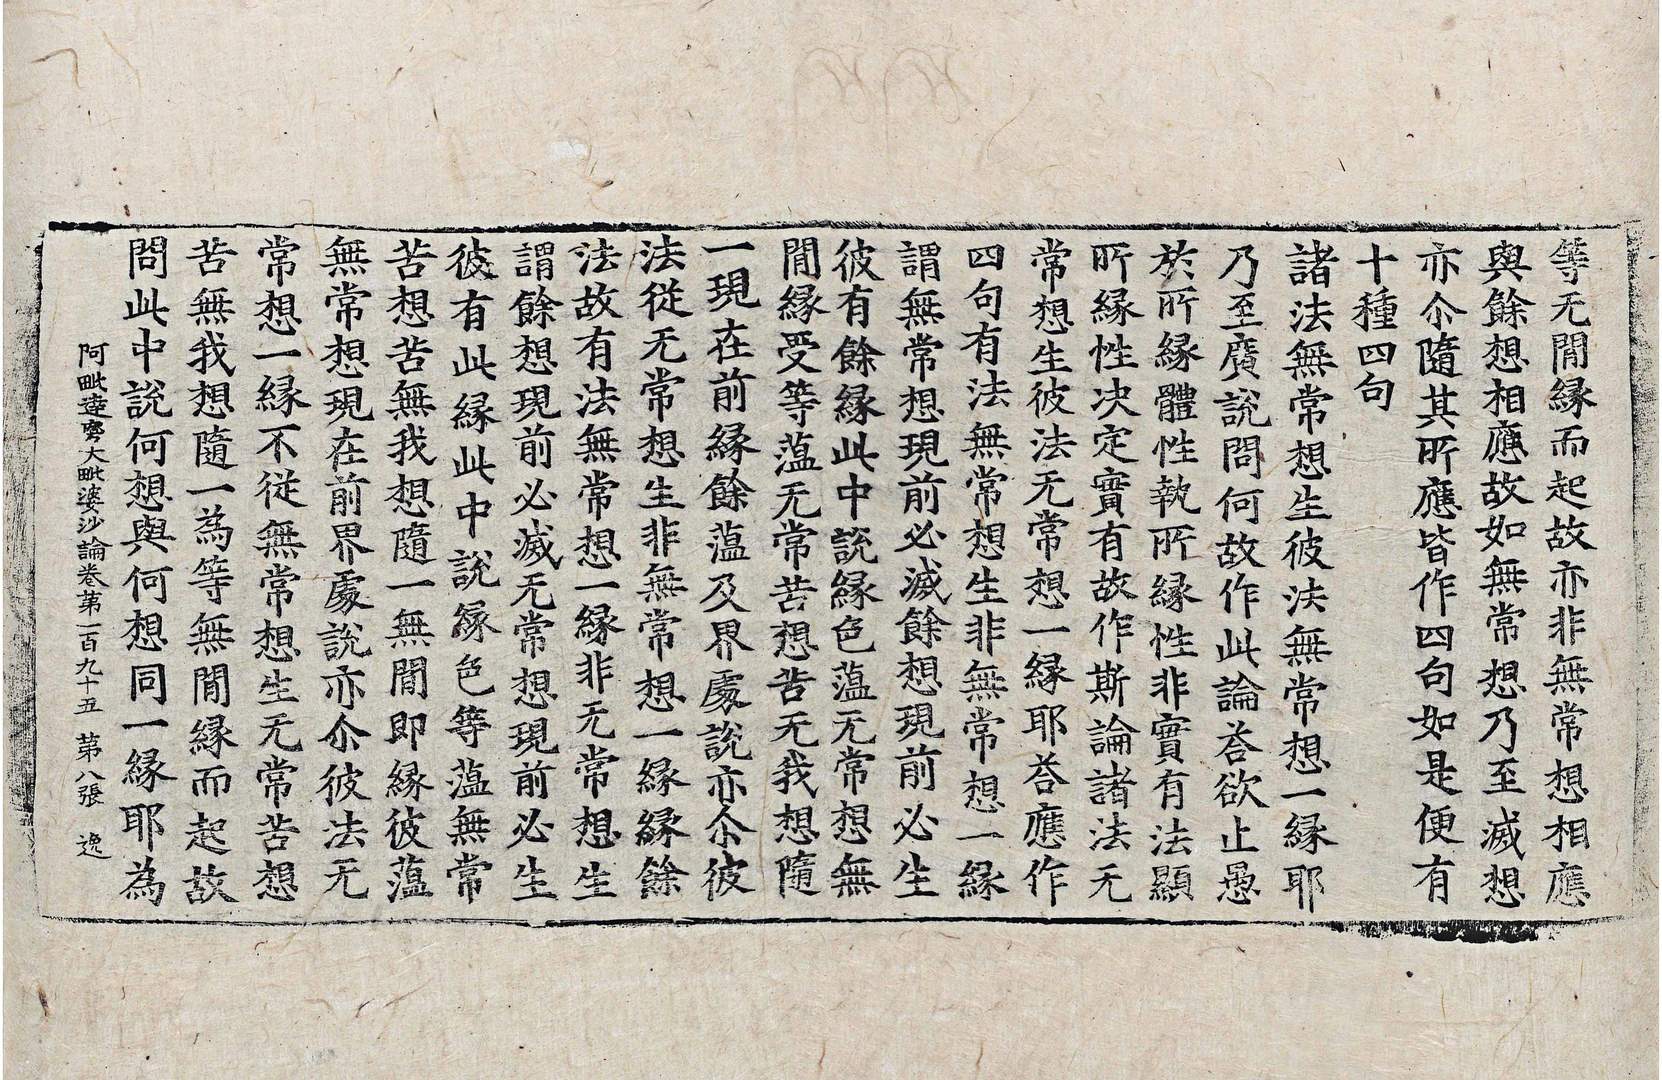 等无閒縁而起故亦非無常想相應
與餘想相應故如無常想乃至滅想
亦尒隨其所應皆作四句如是便有
十種四句
諸法無常想生彼法無常想一縁耶
乃至廣説問何故作此論荅欲止愚
於所縁體性執所縁性非實有法顯
所縁性决定實有故作斯論諸法无
常想生彼法无常想一縁耶荅應作
四句有法無常想生非無常想一縁
謂無常想現前必滅餘想現前必生
彼有餘縁此中説縁色蕰无常想無
閒縁受等蕰无常苦想苦无我想隨
一現在前縁餘蕰及界處説亦尒彼
法從无常想生非無常想一縁縁餘
法故有法無常想一縁非无常想生
謂餘想現前必滅无常想現前必生
彼有此縁此中説縁色等蕰無常
苦想苦無我想隨一無閒即縁彼蕰
無常想現在前界處説亦尒彼法无
常想一縁不從無常想生无常苦想
苦無我想隨一為等無閒縁而起故
問此中説何想與何想同一縁耶為
阿毗達磨大毗婆沙論卷第一百九十五 第八張 逸